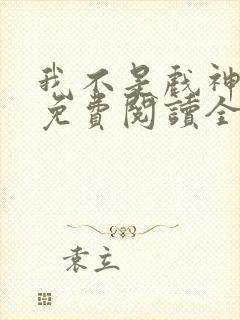 我不是戲神
免費閱讀全
袁立